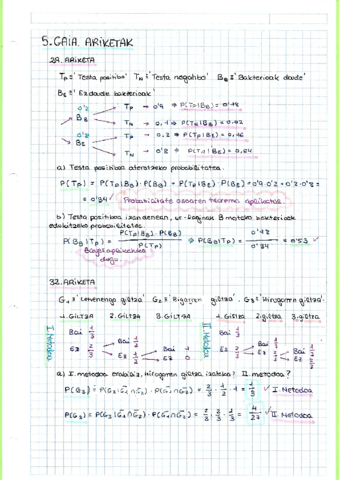 5. GAIA. ARIKETAK
29. ARIKETA
Tp ≡ 'Testa positiboa' TN ≡ 'Testa negatiboa' BB ≡ 'Bakterioak daude'
BE ≡ 'Ez daude bakterioak'
0'2 BB Tp → 0'9 ⇒ P(Tp|BB) = 0'18
TN → 0,1 ⇒ P(TN|BB) = 0,02
0'8 BE Tp → 0,2 ⇒ P(Tp|BE) = 0,16
TN → 0'8 ⇒ P(TN|BE) = 0,64
a) Testa positiboa ateratzeko probabilitatea.
P(Tp) = P(Tp|BB)·P(BB) + P(Tp|BE)·P(BE) = 0'9·0'2 + 0'2·0'8 =
= 0'34 Probabilitate osoaren teorema aplikatuz
b) Testa positiboa izanenean, ur- B motako bakterioak
edukitzeko probabilitatea.
P(BB|Tp) = P(Tp|BB)·P(BB) / P(Tp) ⇒ P(BB|Tp) = 0'18 / 0'34 = 0'53 ✓
Bayes aplikatuko
dugu
32. ARIKETA
G1 ≡ 'Lehenengo giltza' G2 ≡ 'Bigarren giltza' G3 ≡ 'Hirugarren giltza'
1. GILTZA 2. GILTZA 3. GILTZA 1. Giltza 2. giltza 3. giltza
I. Metodoa II. Metodoa
Bai 1/3 Bai 1/3
Ez 2/3 Bai 1/2 Ez 2/3 Bai 1/3
Ez 1/2 Bai 1 Ez 2/3 Bai 1/3
Ez 0 Ez 2/3
a) I. metodoa erabiliz, hirugarren giltza izateko? II. metodoa?
P(G3) = P(G3|G̅1∩G̅2)·P(G̅1∩G̅2) = 2/3 · 1/2 · 1 = 1/3 ✓ I Metodoa
P(G3) = P(G3|G̅1∩G̅2)·P(G̅1∩G̅2) = 2/3 · 2/3 · 1/3 = 4/27 ✓ II Metodoa